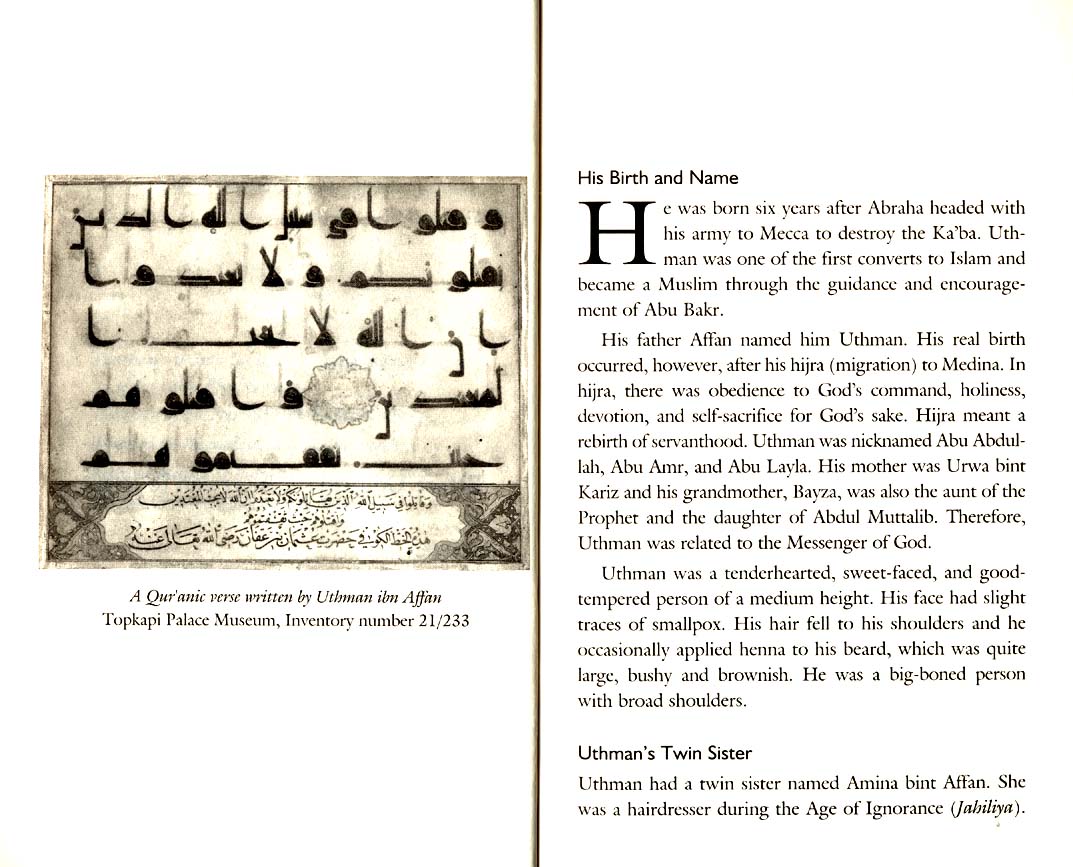 وقتلوا في سبيل الله الذين
يقتلونكم ولا تعتدوا
ان الله لا يحب ا
لمعتدين واقتلوهم
حيث ثقفتموهم
وقاتلوا في سبيل الله الذين يقاتلونكم ولا تعتدوا ان الله لا يحب المعتدين
واقتلوهم حيث ثقفتموهم
هذه الخط الكوفي حضرت عثمان بن عفان رضي الله تعالى عنه
A Qur'anic verse written by Uthman ibn Affan
Topkapi Palace Museum, Inventory number 21/233
His Birth and Name
He was born six years after Abraha headed with
his army to Mecca to destroy the Ka'ba. Uth-
man was one of the first converts to Islam and
became a Muslim through the guidance and encourage-
ment of Abu Bakr.
His father Affan named him Uthman. His real birth
occurred, however, after his hijra (migration) to Medina. In
hijra, there was obedience to God's command, holiness,
devotion, and self-sacrifice for God's sake. Hijra meant a
rebirth of servanthood. Uthman was nicknamed Abu Abdul-
lah, Abu Amr, and Abu Layla. His mother was Urwa bint
Kariz and his grandmother, Bayza, was also the aunt of the
Prophet and the daughter of Abdul Muttalib. Therefore,
Uthman was related to the Messenger of God.
Uthman was a tenderhearted, sweet-faced, and good-
tempered person of a medium height. His face had slight
traces of smallpox. His hair fell to his shoulders and he
occasionally applied henna to his beard, which was quite
large, bushy and brownish. He was a big-boned person
with broad shoulders.
Uthman's Twin Sister
Uthman had a twin sister named Amina bint Affan. She
was a hairdresser during the Age of Ignorance (Jahiliya).